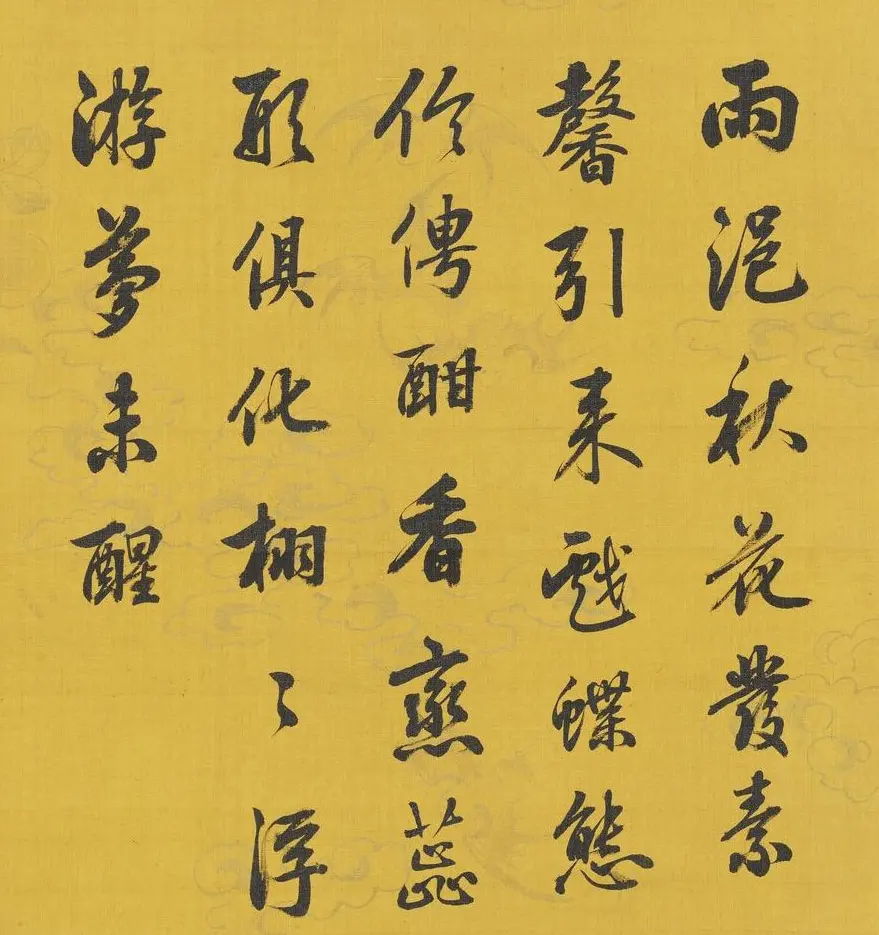 雨浥秋花發素
馨引来戲蝶態
伶俜酣香戀蕋
形俱化栩〻浮
游夢未醒